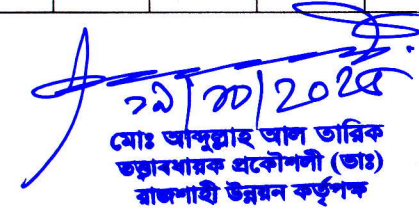 মোঃ আব্দুল্লাহ আল তারিক
তত্ত্বাবধায়ক প্রকৌশলী (ভাঃ)
রাজশাহী উন্নয়ন কর্তৃপক্ষ